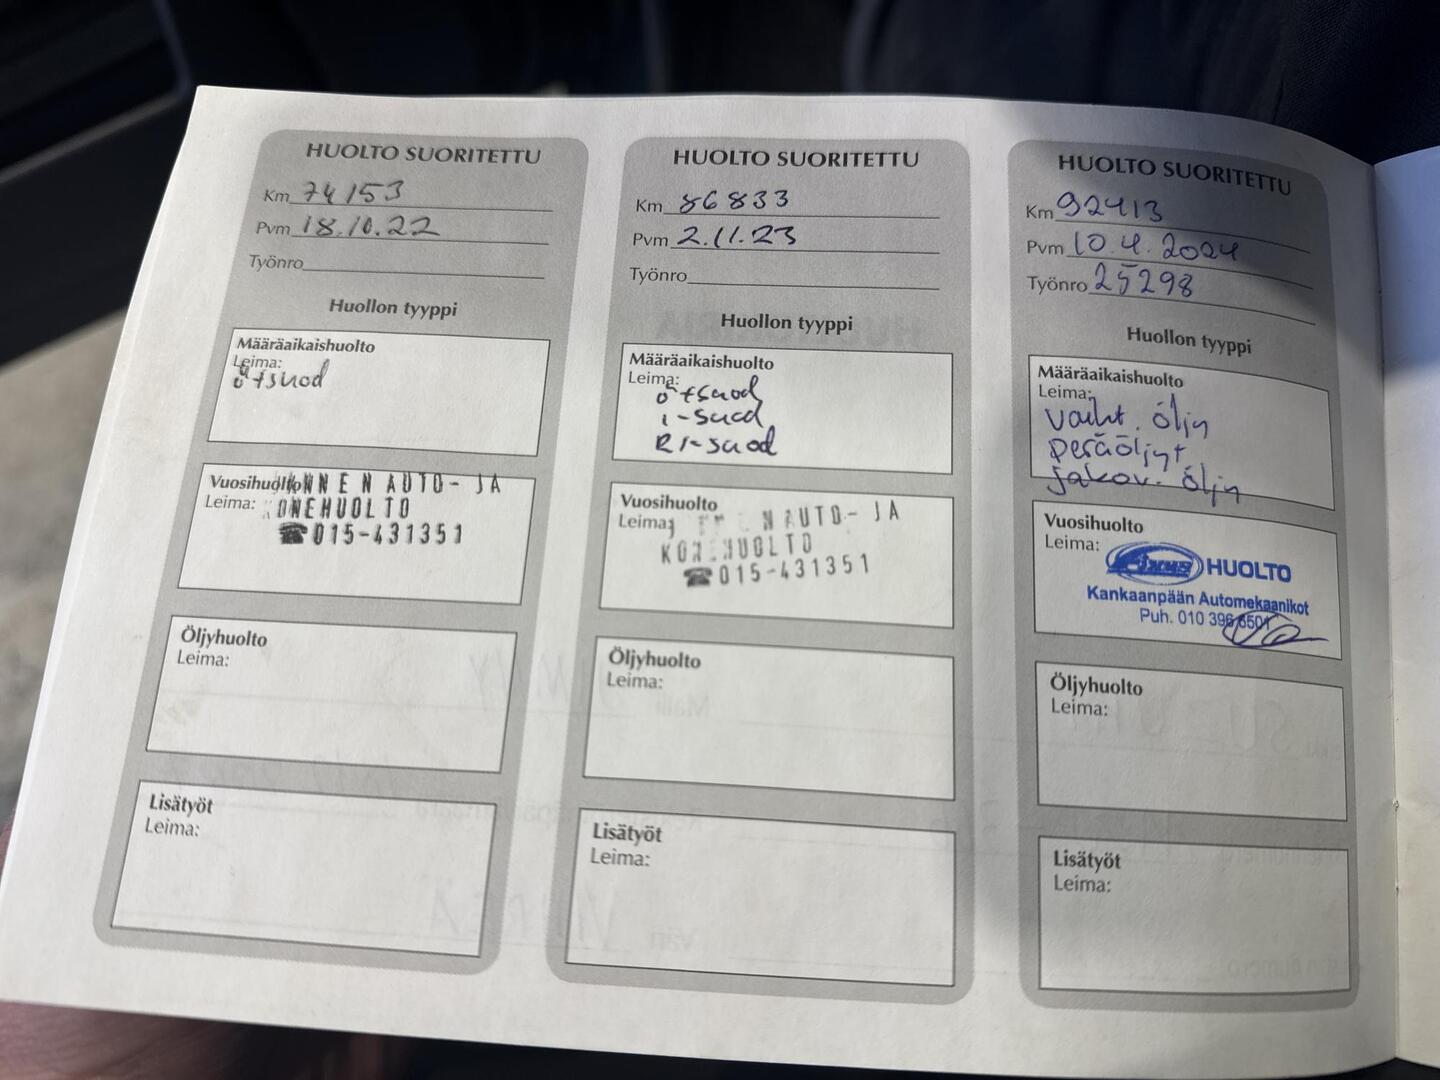 HUOLTO SUORITETTU
Km 74153
Pvm 18.10.22
Työnro
Huollon tyyppi
Määräaikaishuolto
Leima:
ö+suod
Vuosihuolto
Leima:
NNEN AUTO- JA
ONEHUOLTO
☎015-431351
Öljyhuolto
Leima:
Lisätyöt
Leima:
HUOLTO SUORITETTU
Km 86833
Pvm 2.11.23
Työnro
Huollon tyyppi
Määräaikaishuolto
Leima:
ö+suod
i-suod
RI-suod
Vuosihuolto
Leima:
EN AUTO- JA
KONEHUOLTO
☎015-431351
Öljyhuolto
Leima:
Lisätyöt
Leima:
HUOLTO SUORITETTU
Km 92413
Pvm 10.4.2024
Työnro 25298
Huollon tyyppi
Määräaikaishuolto
Leima:
vaiht. öljy
peräöljyt
jakov. öljy
Vuosihuolto
Leima:
HUOLTO
Kankaanpään Automekaanikot
Puh. 010 396 6501
Öljyhuolto
Leima:
Lisätyöt
Leima: